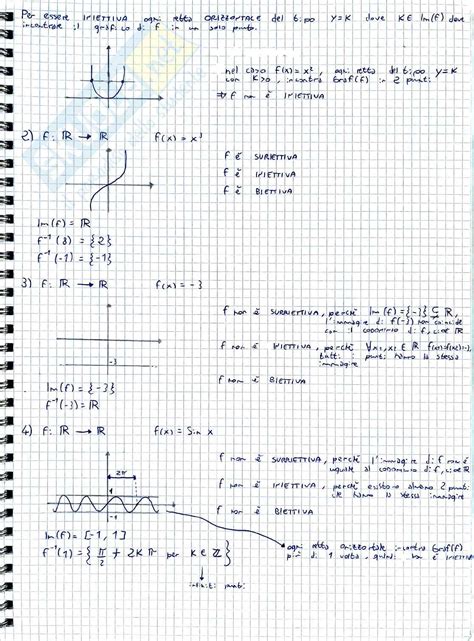 Per essere INIETTIVA ogni retta ORIZZONTALE del tipo y=K dove K∈Im(f) deve
incontrare il grafico di f in un solo punto.
nel caso f(x)=x², ogni retta del tipo y=K
con K>0, incontra Graf(f) in 2 punti
⇒ f non è INIETTIVA
2) f: ℝ → ℝ f(x)=x³
f è SURIETTIVA
f è INIETTIVA
f è BIETTIVA
Im(f)=ℝ
f⁻¹(8)={2}
f⁻¹(-1)={-1}
3) f: ℝ → ℝ f(x)=-3
f non è SURIETTIVA, perché Im(f)={-3}⊊ℝ,
l'immagine di f(-3) non coincide
con il codominio di f, cioè ℝ
-3
f non è INIETTIVA, perché ∀x₁,x₂∈ℝ f(x₁)=f(x₂)=-3,
tutti i punti hanno la stessa
immagine
f non è BIETTIVA
Im(f)={-3}
f⁻¹(-3)=ℝ
4) f: ℝ → ℝ f(x)=Sin x
f non è SURIETTIVA, perché l'immagine di f non è
uguale al codominio di f, cioè ℝ
2π
1
-1
f non è INIETTIVA, perché esistono almeno 2 punti
che hanno la stessa immagine
f non è BIETTIVA
Im(f)=[-1,1]
f⁻¹(1)={π/2+2Kπ per K∈ℤ}
ogni retta orizzontale incontra Graf(f)
più di 1 volta, quindi non è INIETTIVA
infiniti punti